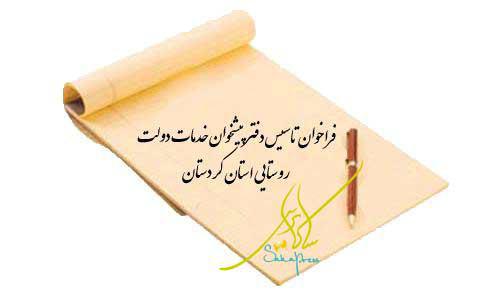 فراخوان تاسیس دفتر پیشخوان خدمات دولت
روستایی استان کردستان